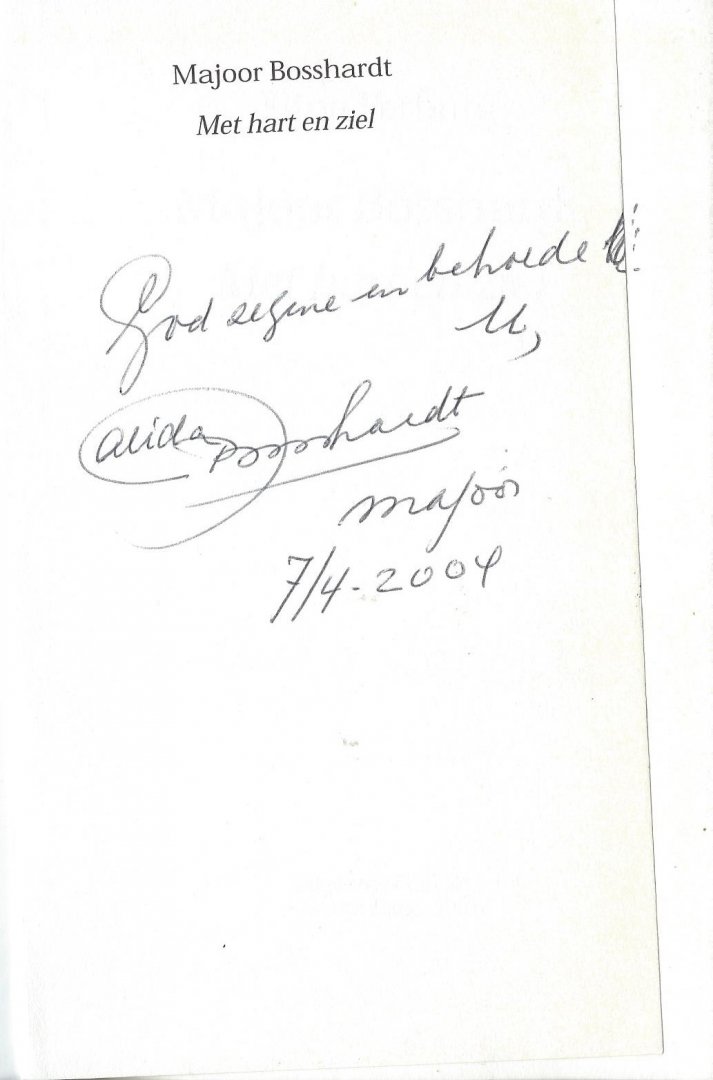 Majoor Bosshardt
Met hart en ziel
God zegene en behoede
U,
Alida Bosshardt
majoor
7/4-2004